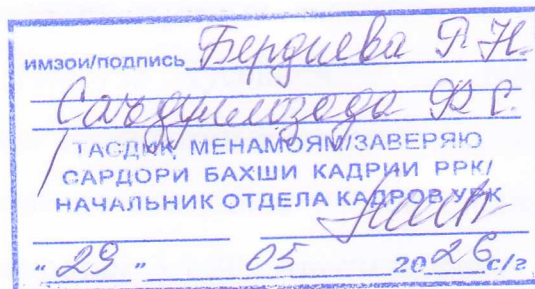 ИМЗОИ/ПОДПИСЬ Бердиева Р. Н.
Саъдуллозода Ф С.
ТАСДИҚ МЕНАМОЯМ/ЗАВЕРЯЮ
САРДОРИ БАХШИ КАДРИИ РРК/
НАЧАЛЬНИК ОТДЕЛА КАДРОВ УРК
"29" 05 2026 с/г